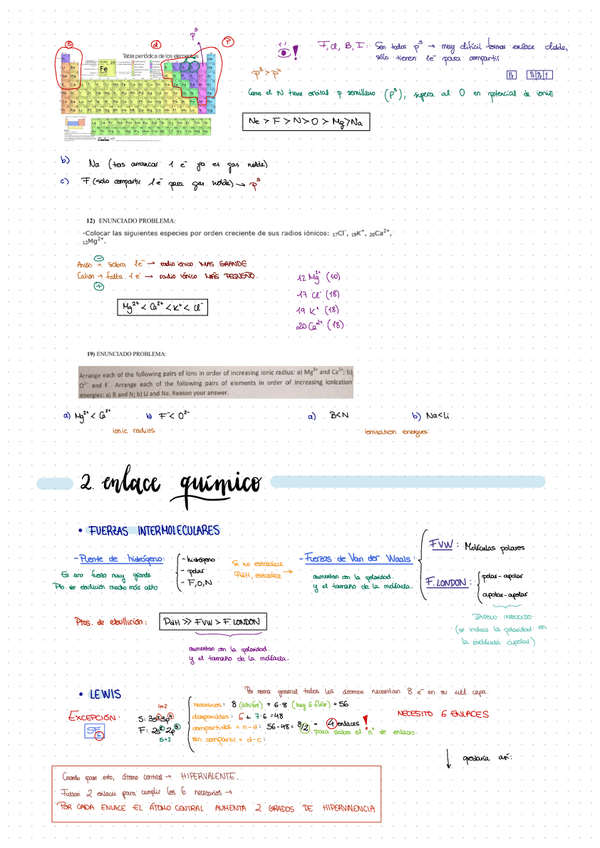 p³
s
d
p
Tabla periódica de los elementos
Fe
F, Cl, B, I: Son todos p⁵ → muy difícil formar enlace doble,
sólo tienen 1e⁻ para compartir
p³ > p⁴
Como el N tiene orbital p semilleno (p³), supera al O en potencial de ioniz.
Ne > F > N > O > Mg > Na
b) Na (tras arrancar 1 e⁻ ya es gas noble)
c) F (sólo compartir 1e⁻ para gas noble) → p⁵
12) ENUNCIADO PROBLEMA:
-Colocar las siguientes especies por orden creciente de sus radios iónicos: ₁₇Cl⁻, ₁₉K⁺, ₂₀Ca²⁺,
₁₂Mg²⁺.
Anión → sobra 1e⁻ → radio iónico MAS GRANDE
Catión → falta 1e⁻ → radio iónico MÁS PEQUEÑO.
Mg²⁺ < Ca²⁺ < K⁺ < Cl⁻
12 Mg²⁺ (10)
17 Cl⁻ (18)
19 K⁺ (18)
20 Ca²⁺ (18)
19) ENUNCIADO PROBLEMA:
Arrange each of the following pairs of ions in order of increasing ionic radius: a) Mg²⁺ and Ca²⁺; b)
O²⁻ and F⁻. Arrange each of the following pairs of elements in order of increasing ionization
energies: a) B and N; b) Li and Na. Reason your answer.
a) Mg²⁺ < Ca²⁺ b) F⁻ < O²⁻ a) B<N b) Na<Li
Ionic radius Ionization energies
2. enlace químico
• FUERZAS INTERMOLECULARES
- Puente de hidrógeno:
Es una fuerza muy grande
Pto. de ebullición mucho más alto
- hidrógeno
- polar
- F, O, N
Si no establece
PdH, establece →
- Fuerzas de Van der Waals:
aumentan con la polaridad
y el tamaño de la molécula.
F VW: Moléculas polares
F. LONDON: polar - apolar
apolar - apolar
DIPOLO INDUCIDO
(se induce la polaridad en
la molécula apolar)
Ptos. de ebullición: PdH >> F VW > F LONDON
aumentan con la polaridad
y el tamaño de la molécula.
• LEWIS
Por norma general todos los átomos necesitan 8 e⁻ en su últ. capa.
EXCEPCIÓN:
SF₆
4+2
S: 3s²3p⁴
F: 2s²2p⁵
5+2
necesarios: 8 (azufre) + 6·8 (hay 6 flúor) = 56
disponibles: 6 + 7·6 = 48
compartidos = n-d: 56-48 = 8/2 = 4 enlaces !
para saber el nº de enlaces
sin compartir = d-c:
NECESITO 6 ENLACES
quedaría así:
Cuando pase esto, átomo central → HIPERVALENTE.
Faltan 2 enlaces para cumplir los 6 necesarios →
POR CADA ENLACE EL ÁTOMO CENTRAL AUMENTA 2 GRADOS DE HIPERVALENCIA